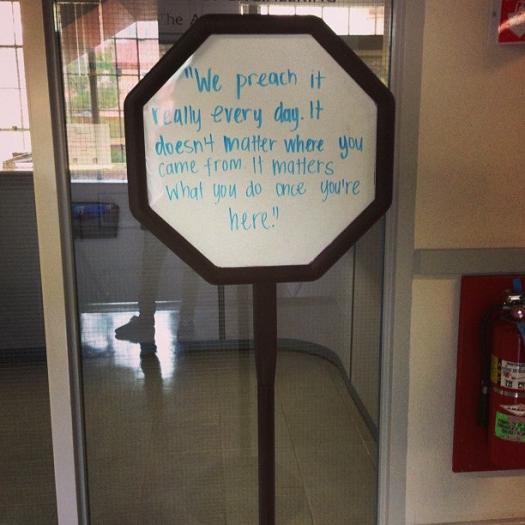 The
"We preach it
really every day. It
doesn't matter where you
came from. It matters
what you do once you're
here."